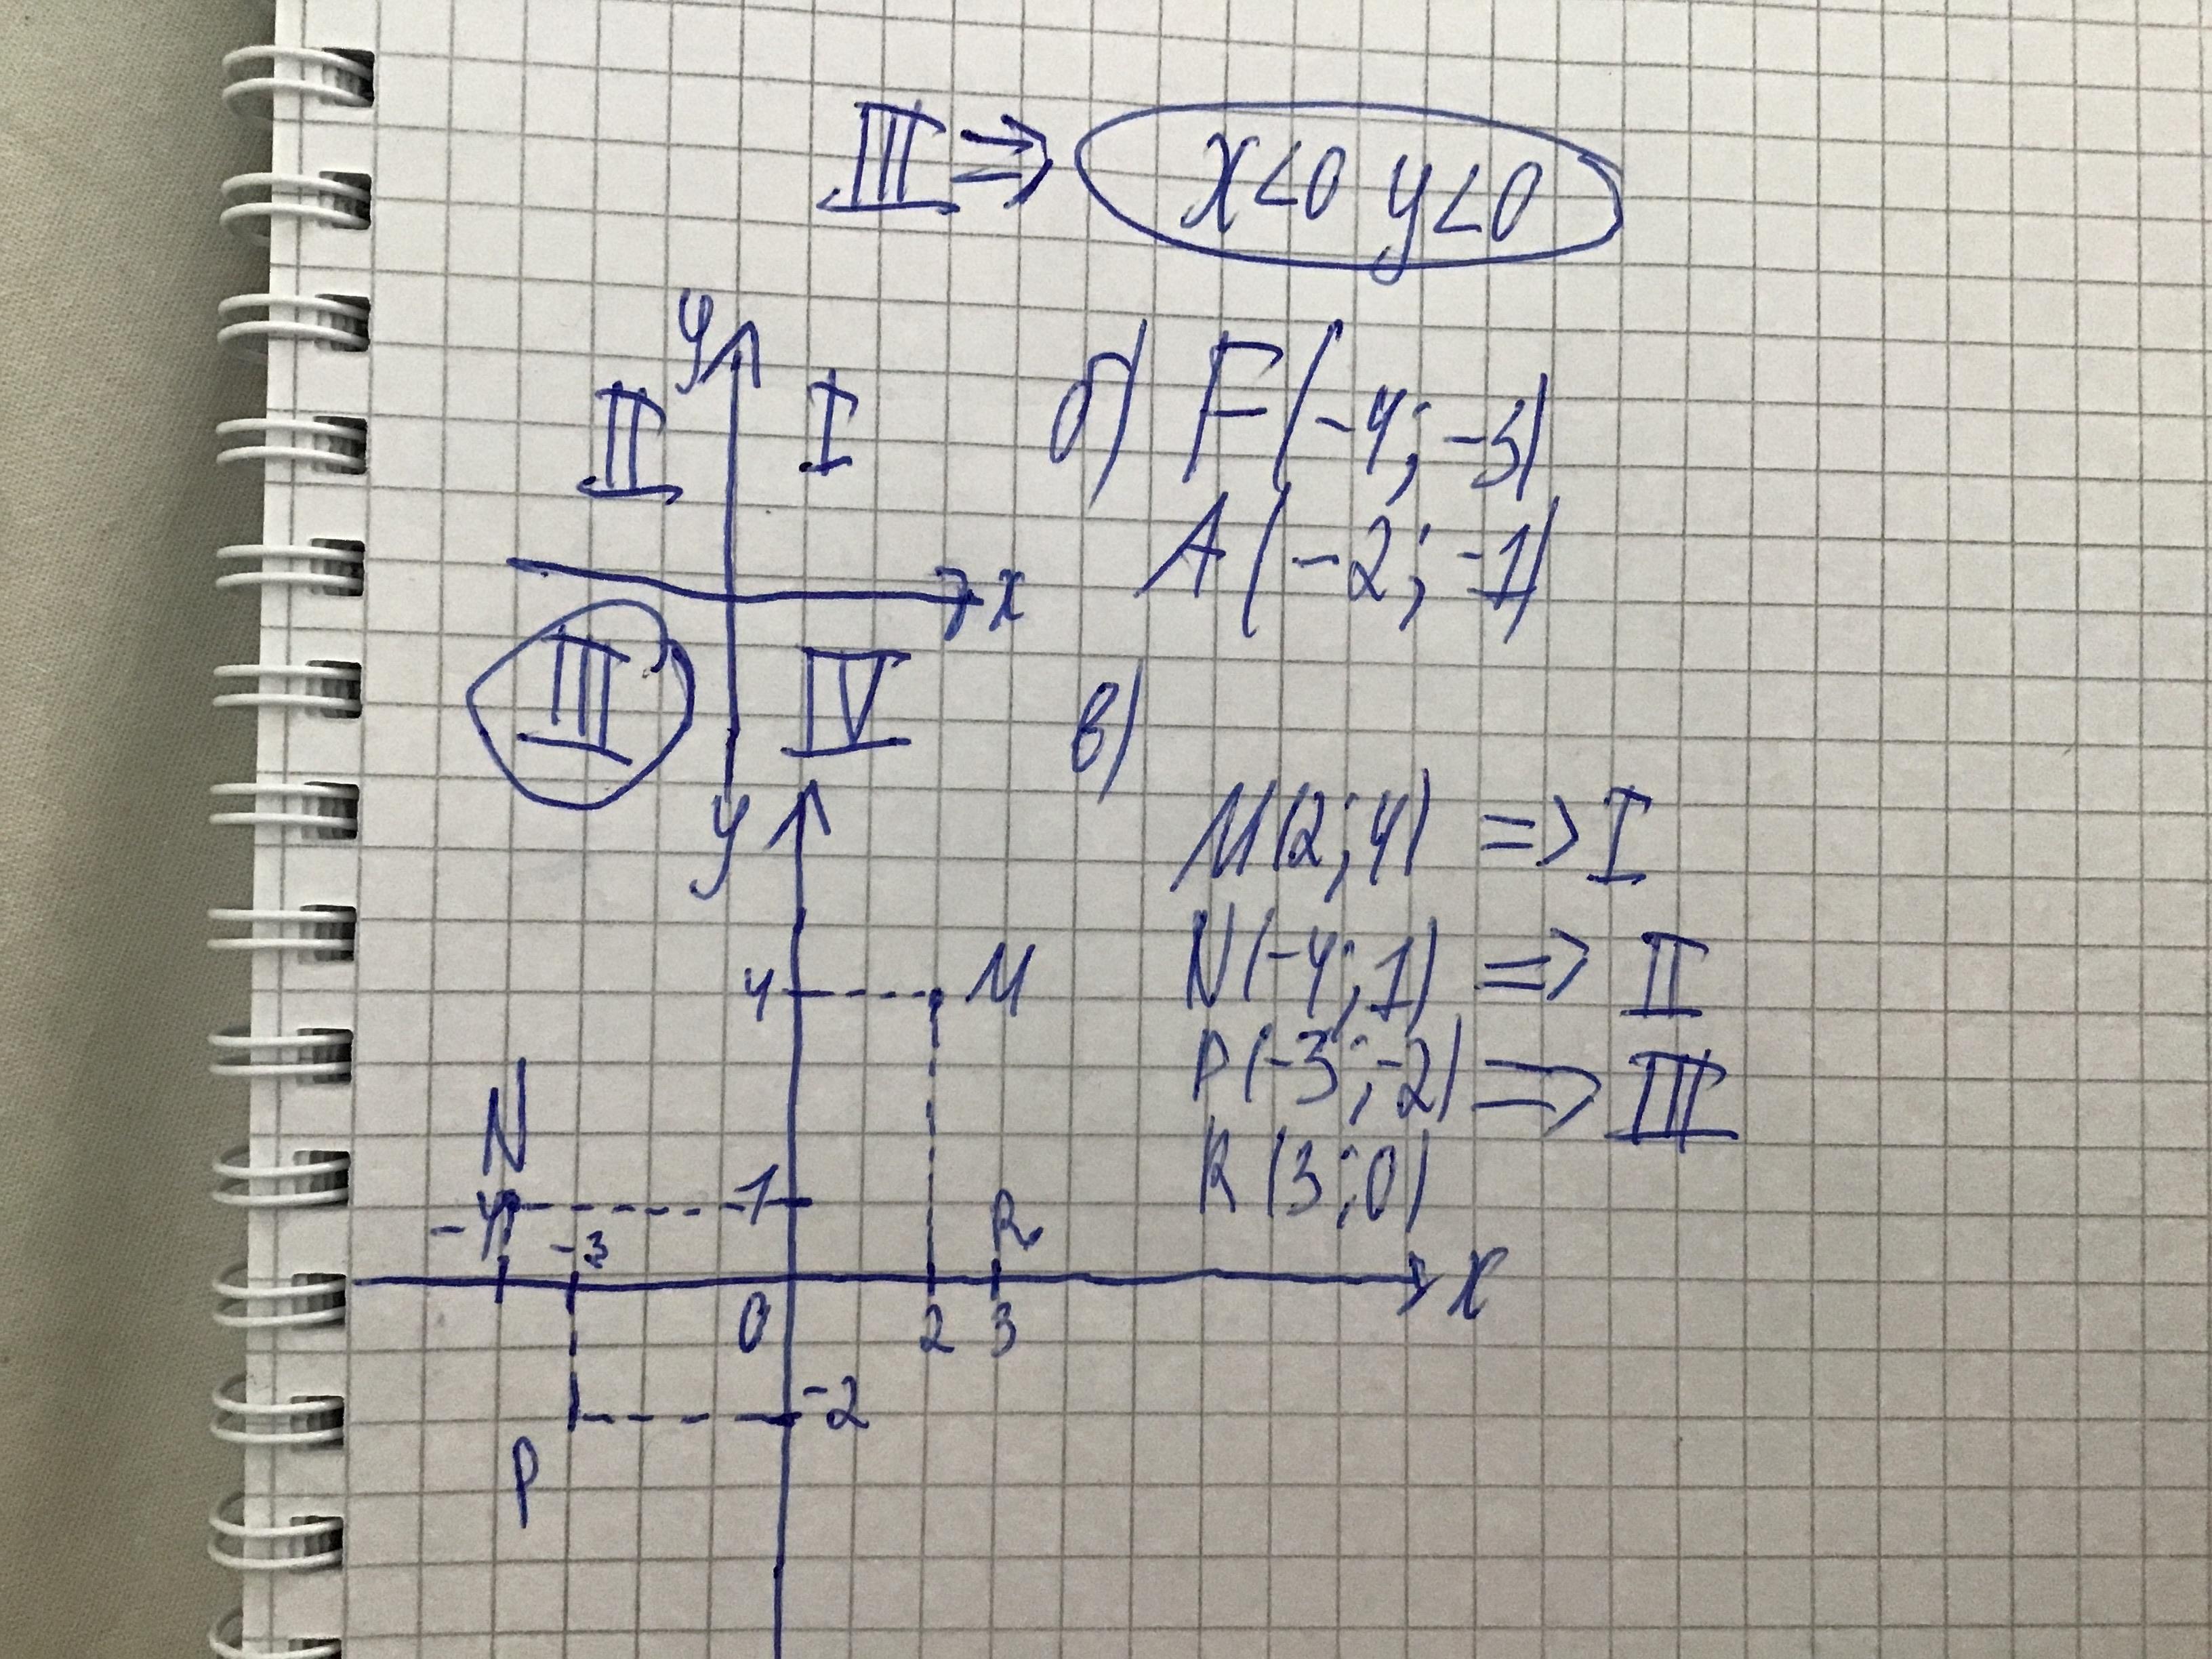 III => x<0 y<0
y
II I
x
III IV
б) F(-4; -3)
A(-2; -1)
в)
M(2; 4) => I
N(-4; 1) => II
P(-3; -2) => III
R(3; 0)
y
4 M
N
-4 -3 1 R
0 2 3 x
-2
P